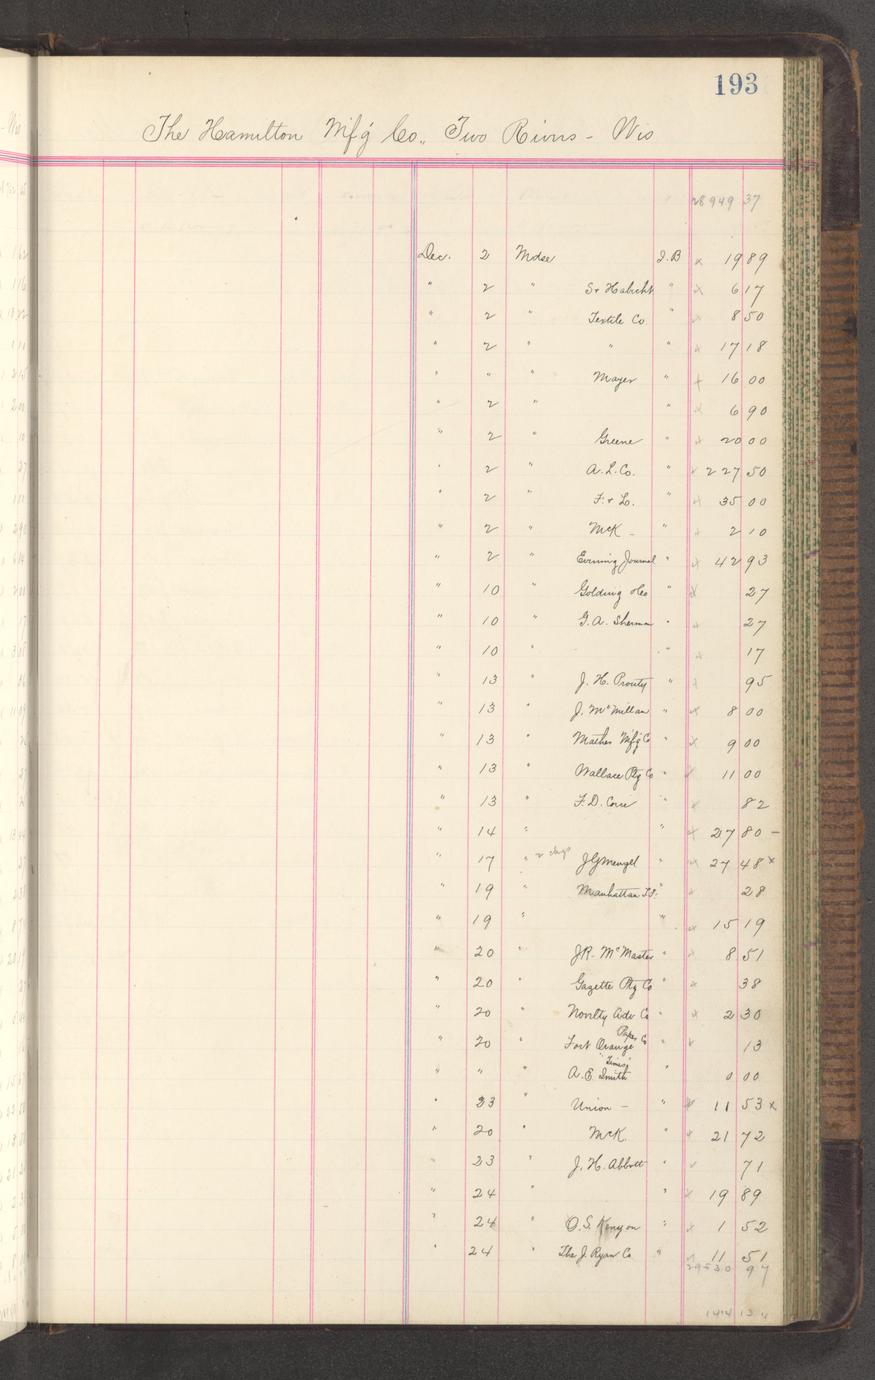 193
The Hamilton Mf'g Co., Two Rivers - Wis
28949 37
Dec. 2 Mdse I.B x 19 89
" 2 " S & Habicht " x 6 17
" 2 " Textile Co " x 8 50
" 2 " " " x 17 18
" " " Mayer " x 16 00
" 2 " " x 6 90
" 2 " Greene " x 20 00
" 2 " A.L.Co. " x 227 50
" 2 " F. & Lo. " x 35 00
" 2 " McK - " x 2 10
" 2 " Evening Journal " x 42 93
" 10 " Golding & Co " x 27
" 10 " G.A. Sherman " x 27
" 10 " " " x 17
" 13 " J. H. Prouty " x 95
" 13 " J. McMillan " x 8 00
" 13 " Mather Mf'g Co " x 9 00
" 13 " Wallace Ptg Co " x 11 00
" 13 " F.D. " x 82
" 14 " " x 27 80 -
" 17 " JGMengel " x 27 48 x
" 19 " Manhattan " x 28
" 19 " " x 15 19
" 20 " JR. McMaster " x 8 51
" 20 " Gazette Ptg Co " x 38
" 20 " Novelty Adv Co " x 2 30
" 20 " Fort Orange Paper Co " x 13
" " " A.E Smith "Times" " 0 00
" 23 " Union - " x 11 53 x
" 20 " McK. " x 21 72
" 23 " J. H. Abbott " x 71
" 24 " " x 19 89
" 24 " O.S. Kenyon " x 1 52
" 24 " The J. Ryan Co " x 11 51
29530 97